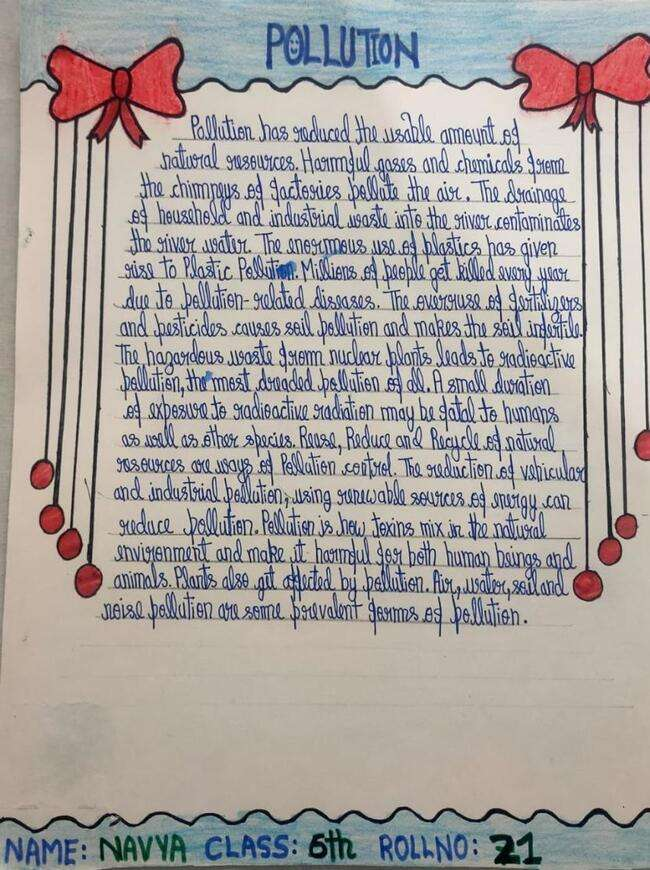 POLLUTION
Pollution has reduced the usable amount of
natural resources. Harmful gases and chemicals from
the chimneys of factories pollute the air. The drainage
of household and industrial waste into the river contaminates
the river water. The enormous use of plastics has given
rise to Plastic Pollution. Millions of people get killed every year
due to pollution-related diseases. The overuse of fertilizers
and pesticides causes soil pollution and makes the soil infertile.
The hazardous waste from nuclear plants leads to radioactive
pollution, the most dreaded pollution of all. A small duration
of exposure to radioactive radiation may be fatal to humans
as well as other species. Reuse, Reduce and Recycle of natural
resources are ways of Pollution control. The reduction of vehicular
and industrial pollution, using renewable sources of energy can
reduce pollution. Pollution is how toxins mix in the natural
environment and make it harmful for both human beings and
animals. Plants also get affected by pollution. Air, water, soil and
noise pollution are some prevalent forms of pollution.
NAME: NAVYA CLASS: 6th ROLLNO: 21